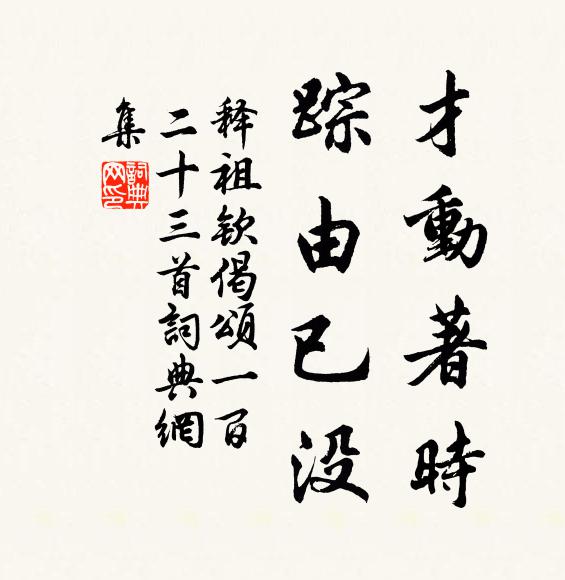 才動著時
踪由已没
释祖钦偈頌一百
二十三首詞典網
集
詞典网印